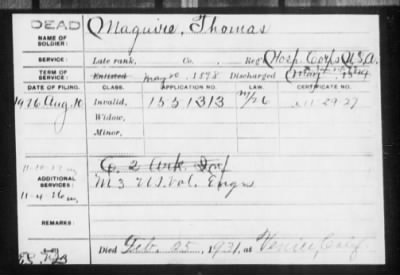 DEAD
NAME OF SOLDIER: Maguire, Thomas
SERVICE: Late rank, Co. Reg't Hosp. Corps U.S.A.
TERM OF SERVICE: Enlisted May 20, 1898 Discharged
DATE OF FILING. CLASS. APPLICATION NO. LAW. CERTIFICATE NO.
1926 Aug. 10 Invalid, 1551313
Widow,
Minor,
ADDITIONAL SERVICES: Co. 2 Ark. Inf
M 3 U.S. Vol. Engrs
REMARKS:
Died Feb. 25, 1931, at Venice, Calif.